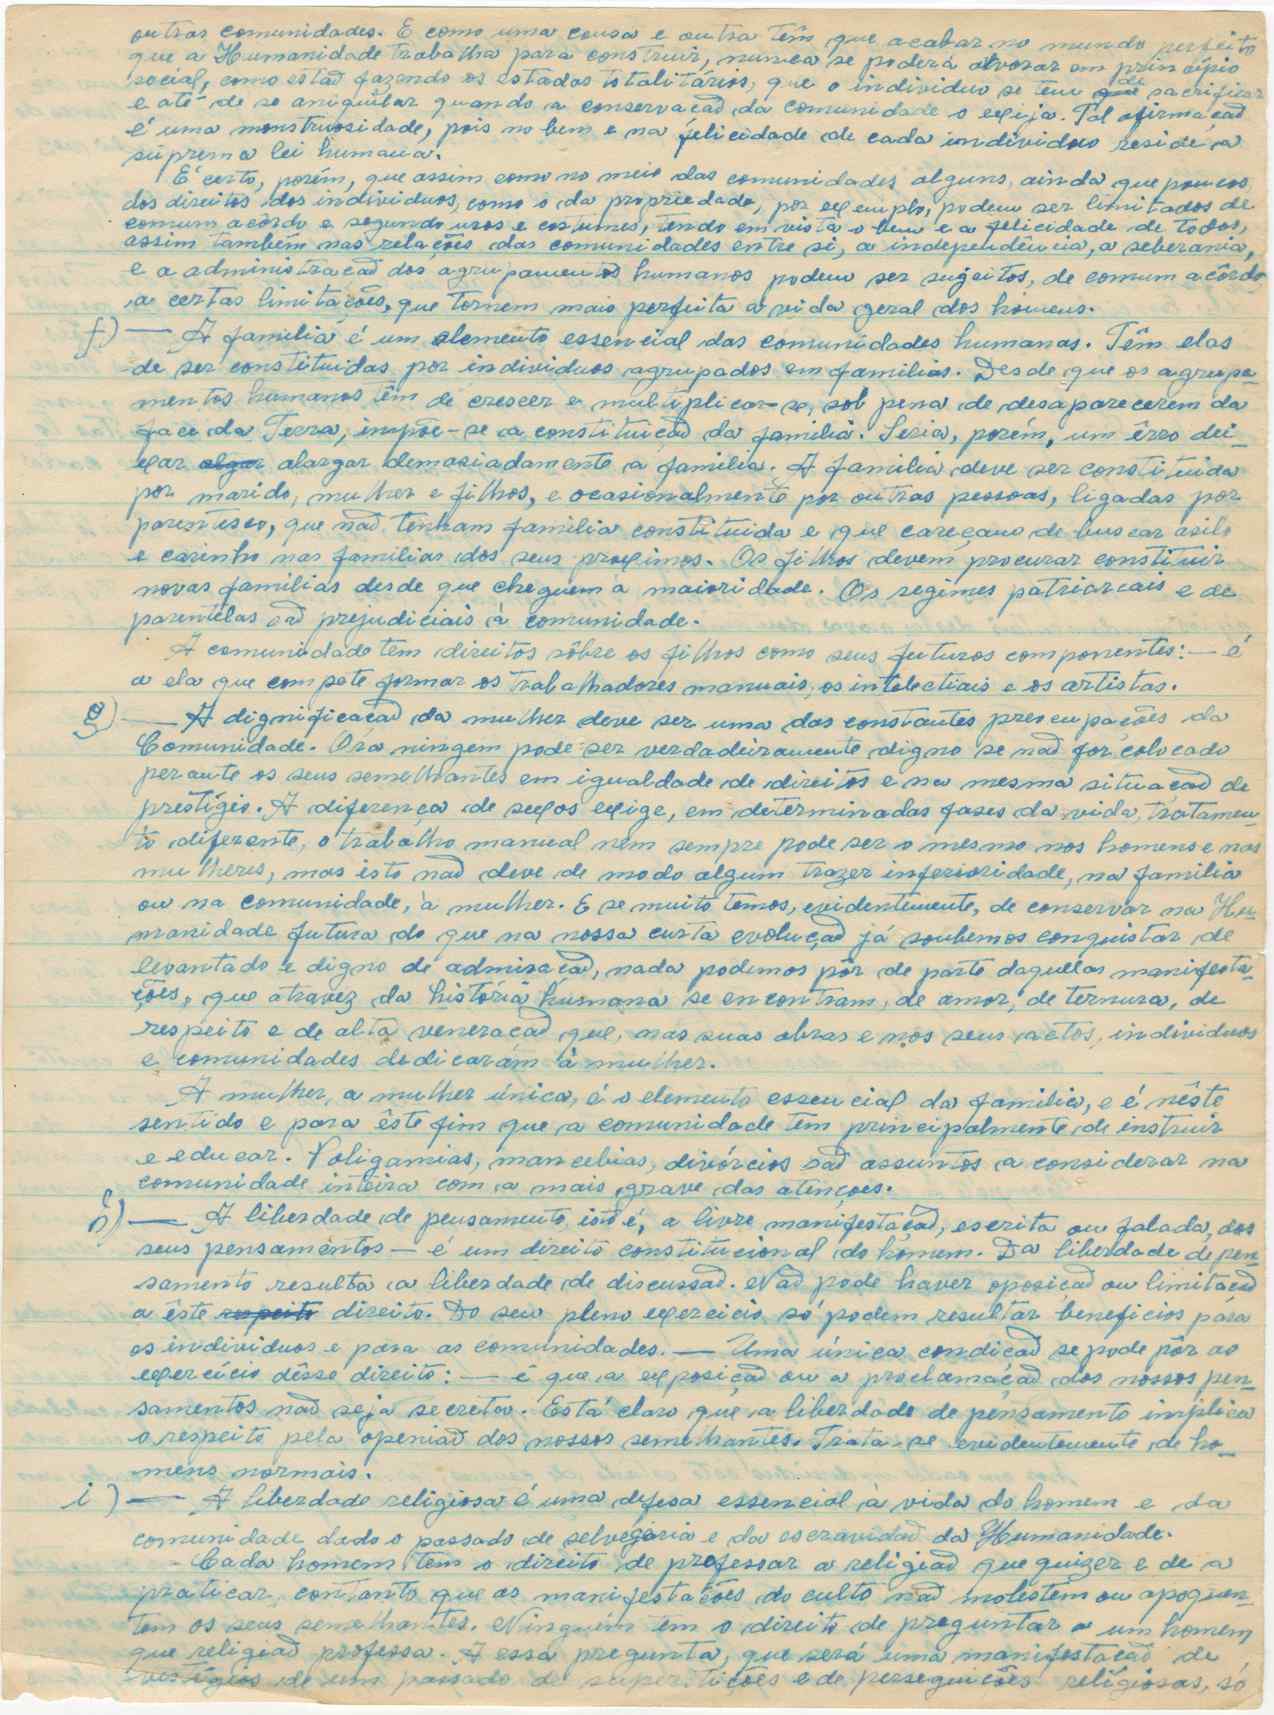 outras comunidades. E como uma cousa e outra têm que acabar no mundo perfeito
que a Humanidade trabalha para construir, nunca se poderá alvorar em princípio
social, como estaõ fazendo os estados totalitários, que o individuo se tem de sacrificar
e até de se aniquilar quando a conservaçaõ da comunidade o exija. Tal afirmaçaõ
é uma monstruosidade, pois no bem e na felicidade de cada individuo reside a
suprema lei humana.
E' certo, porém, que assim como no meio das comunidades alguns, ainda que poucos
dos direitos dos individuos, como o da propriedade, por exemplo, podem ser limitados de
comum acôrdo e segundo usos e costumes, tendo em vista o bem e a felicidade de todos,
assim também nas relações das comunidades entre si, a independência, a soberania,
e a administraçaõ dos agrupamentos humanos podem ser sujeitos, de comum acôrdo
a certas limitações, que tornem mais perfeita a vida geral dos homens.
f) — A familia é um elemento essencial das comunidades humanas. Têm elas
de ser constituidas por individuos agrupados em familias. Desde que os agrupa-
mentos humanos têm de crescer e multiplicar-se, sob pena de desaparecerem da
face da Terra, impõe-se a constituiçaõ da familia. Seria, porém, um êrro dei-
xar algar alargar demasiadamente a familia. A familia deve ser constituida
por marido, mulher e filhos, e ocasionalmente por outras pessoas, ligadas por
parentesco, que naõ tenham familia constituida e que careçam de buscar asilo
e carinho nas familias dos seus proximos. Os filhos devem procurar constituir
novas familias desde que cheguem à maioridade. Os regimes patriarcais e de
parentelas saõ prejudiciais à comunidade.
A comunidade tem direitos sôbre os filhos como seus futuros componentes: — é
a ela que compete formar os trabalhadores manuais, os intelectuais e os artistas.
g) — A dignificaçaõ da mulher deve ser uma das constantes preocupações da
Comunidade. Ora ningem pode ser verdadeiramente digno se naõ for colocado
perante os seus semelhantes em igualdade de direitos e na mesma situaçaõ de
prestígio. A diferença de sexos exige, em determinadas fases da vida, tratamen-
to diferente, o trabalho manual nem sempre pode ser o mesmo nos homens e nas
mulheres, mas isto naõ deve de modo algum trazer inferioridade, na familia
ou na comunidade, à mulher. E se muito temos, evidentemente, de conservar na Hu-
manidade futura do que na nossa curta evoluçaõ já soubemos conquistar de
levantado e digno de admiraçaõ, nada podemos pôr de parte daquelas manifesta-
ções, que atravez da história humana se encontram, de amor, de ternura, de
respeito e de alta veneraçaõ que, nas suas obras e nos seus actos, individuos
e comunidades dedicaram à mulher.
A mulher, a mulher única, é o elemento essencial da familia, e é nêste
sentido e para êste fim que a comunidade tem principalmente de instruir
e educar. Poligamias, mancebias, divórcios saõ assuntos a considerar na
comunidade inteira com a mais grave das atenções.
h) — A liberdade de pensamento, isto é, a livre manifestaçaõ, escrita ou falada, dos
seus pensamentos — é um direito constitucional do homem. Da liberdade de pen-
samento resulta a liberdade de discussaõ. Naõ pode haver oposiçaõ ou limitaçaõ
a este respeito direito. Do seu pleno exercicio só podem resultar beneficios para
os individuos e para as comunidades. — Uma única condiçaõ se pode pôr ao
exercício dêsse direito: — é que a exposiçaõ ou a proclamaçaõ dos nossos pen-
samentos naõ seja secreta. Está claro que a liberdade de pensamento implica
o respeito pela openiaõ dos nossos semelhantes. Trata-se evidentemente de ho-
mens normais.
i) — A liberdade religiosa é uma defesa essencial à vida do homem e da
comunidade dado o passado de selvageria e da escravidaõ da Humanidade.
- Cada homem tem o direito de professar a religiaõ que quizer e de a
praticar, contanto que as manifestações do culto naõ molestem ou apoquen-
tem os seus semelhantes. Ninguém tem o direito de preguntar a um homem
que religiaõ professa. A essa pregunta, que será uma manifestaçaõ de
vestígios de um passado de superstições e de perseguições religiosas, só